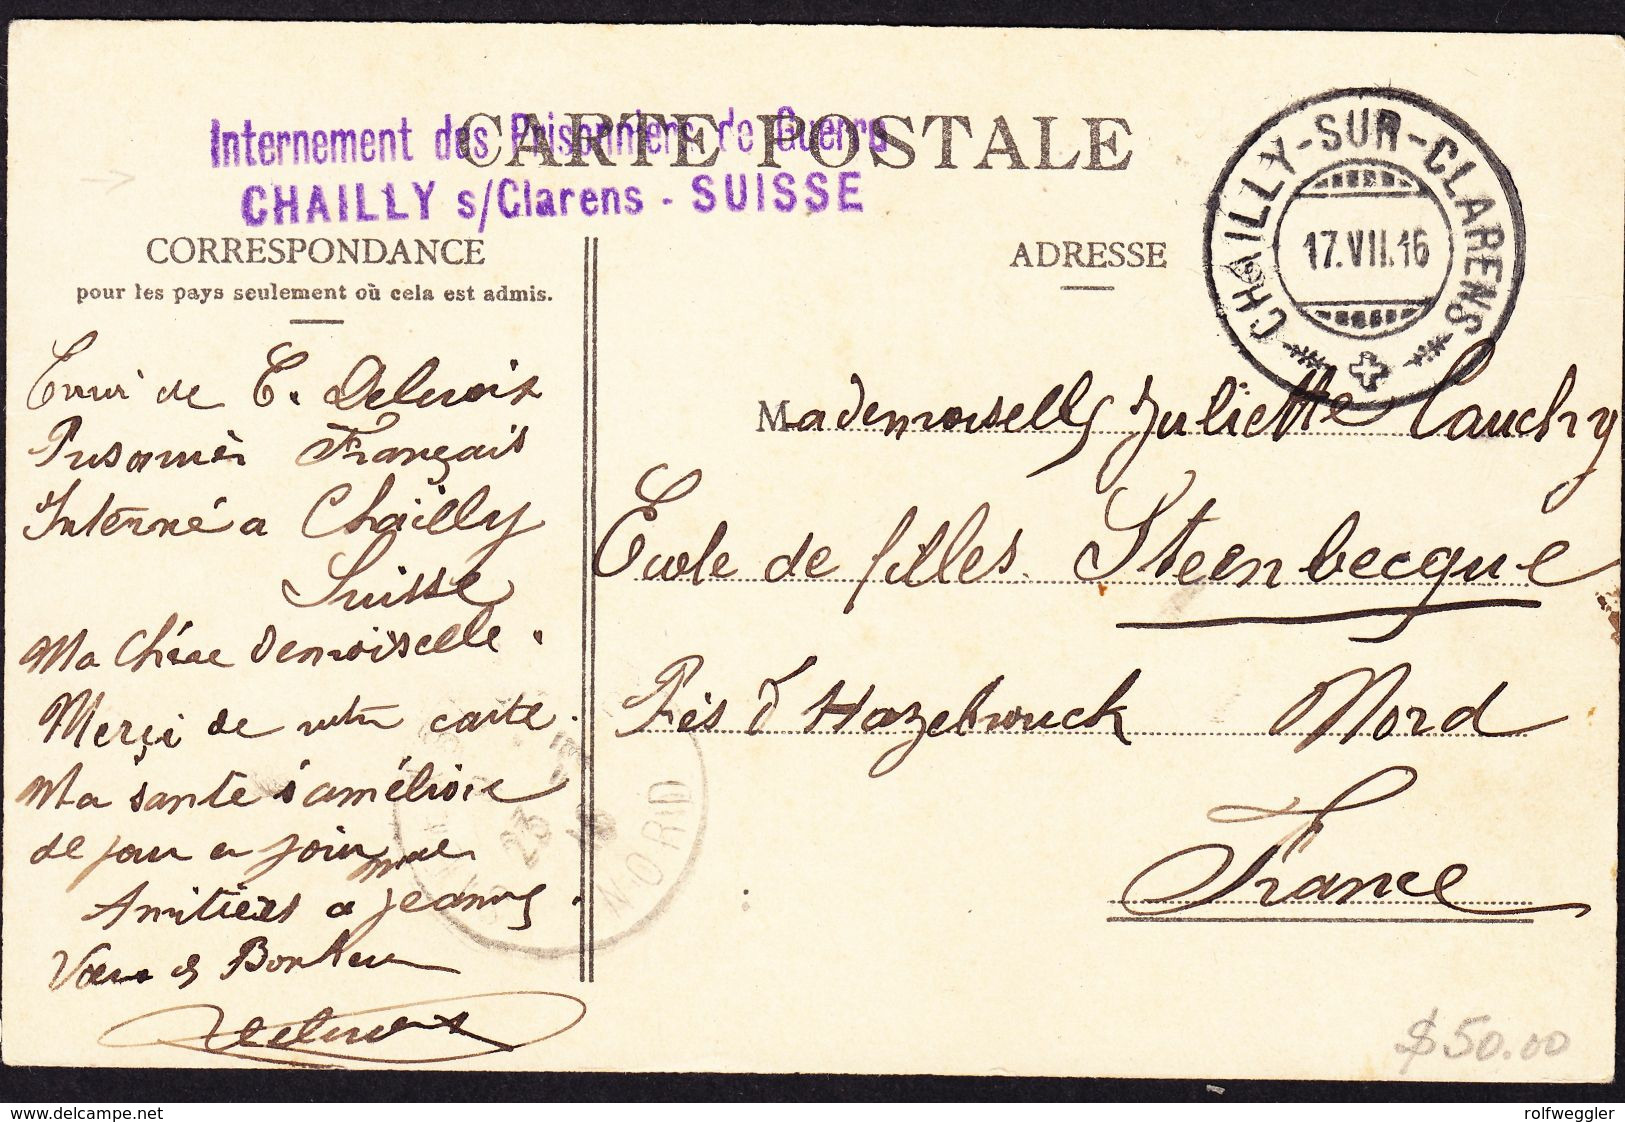 CARTE POSTALE
Internement des Prisonniers de Guerre
CHAILLY s/Clarens - SUISSE
CHAILLY-SUR-CLARENS
17.VII.16
CORRESPONDANCE
pour les pays seulement où cela est admis.
ADRESSE
Envoi de E. Delcroix
Prisonnier Français
Interné a Chailly
Suisse
Ma Chére demoiselle.
Merçi de votre carte.
Ma sante s'améliore
de jour en jour
Amitiers a Jeanne.
Vœux de Bonheur
Delcroix
Mademoiselle Juliette Cauchy
École de filles Steenbecque
Près d'Hazebrouck Nord
France
23
NORD
$50.00
rolfweggler
www.delcampe.net